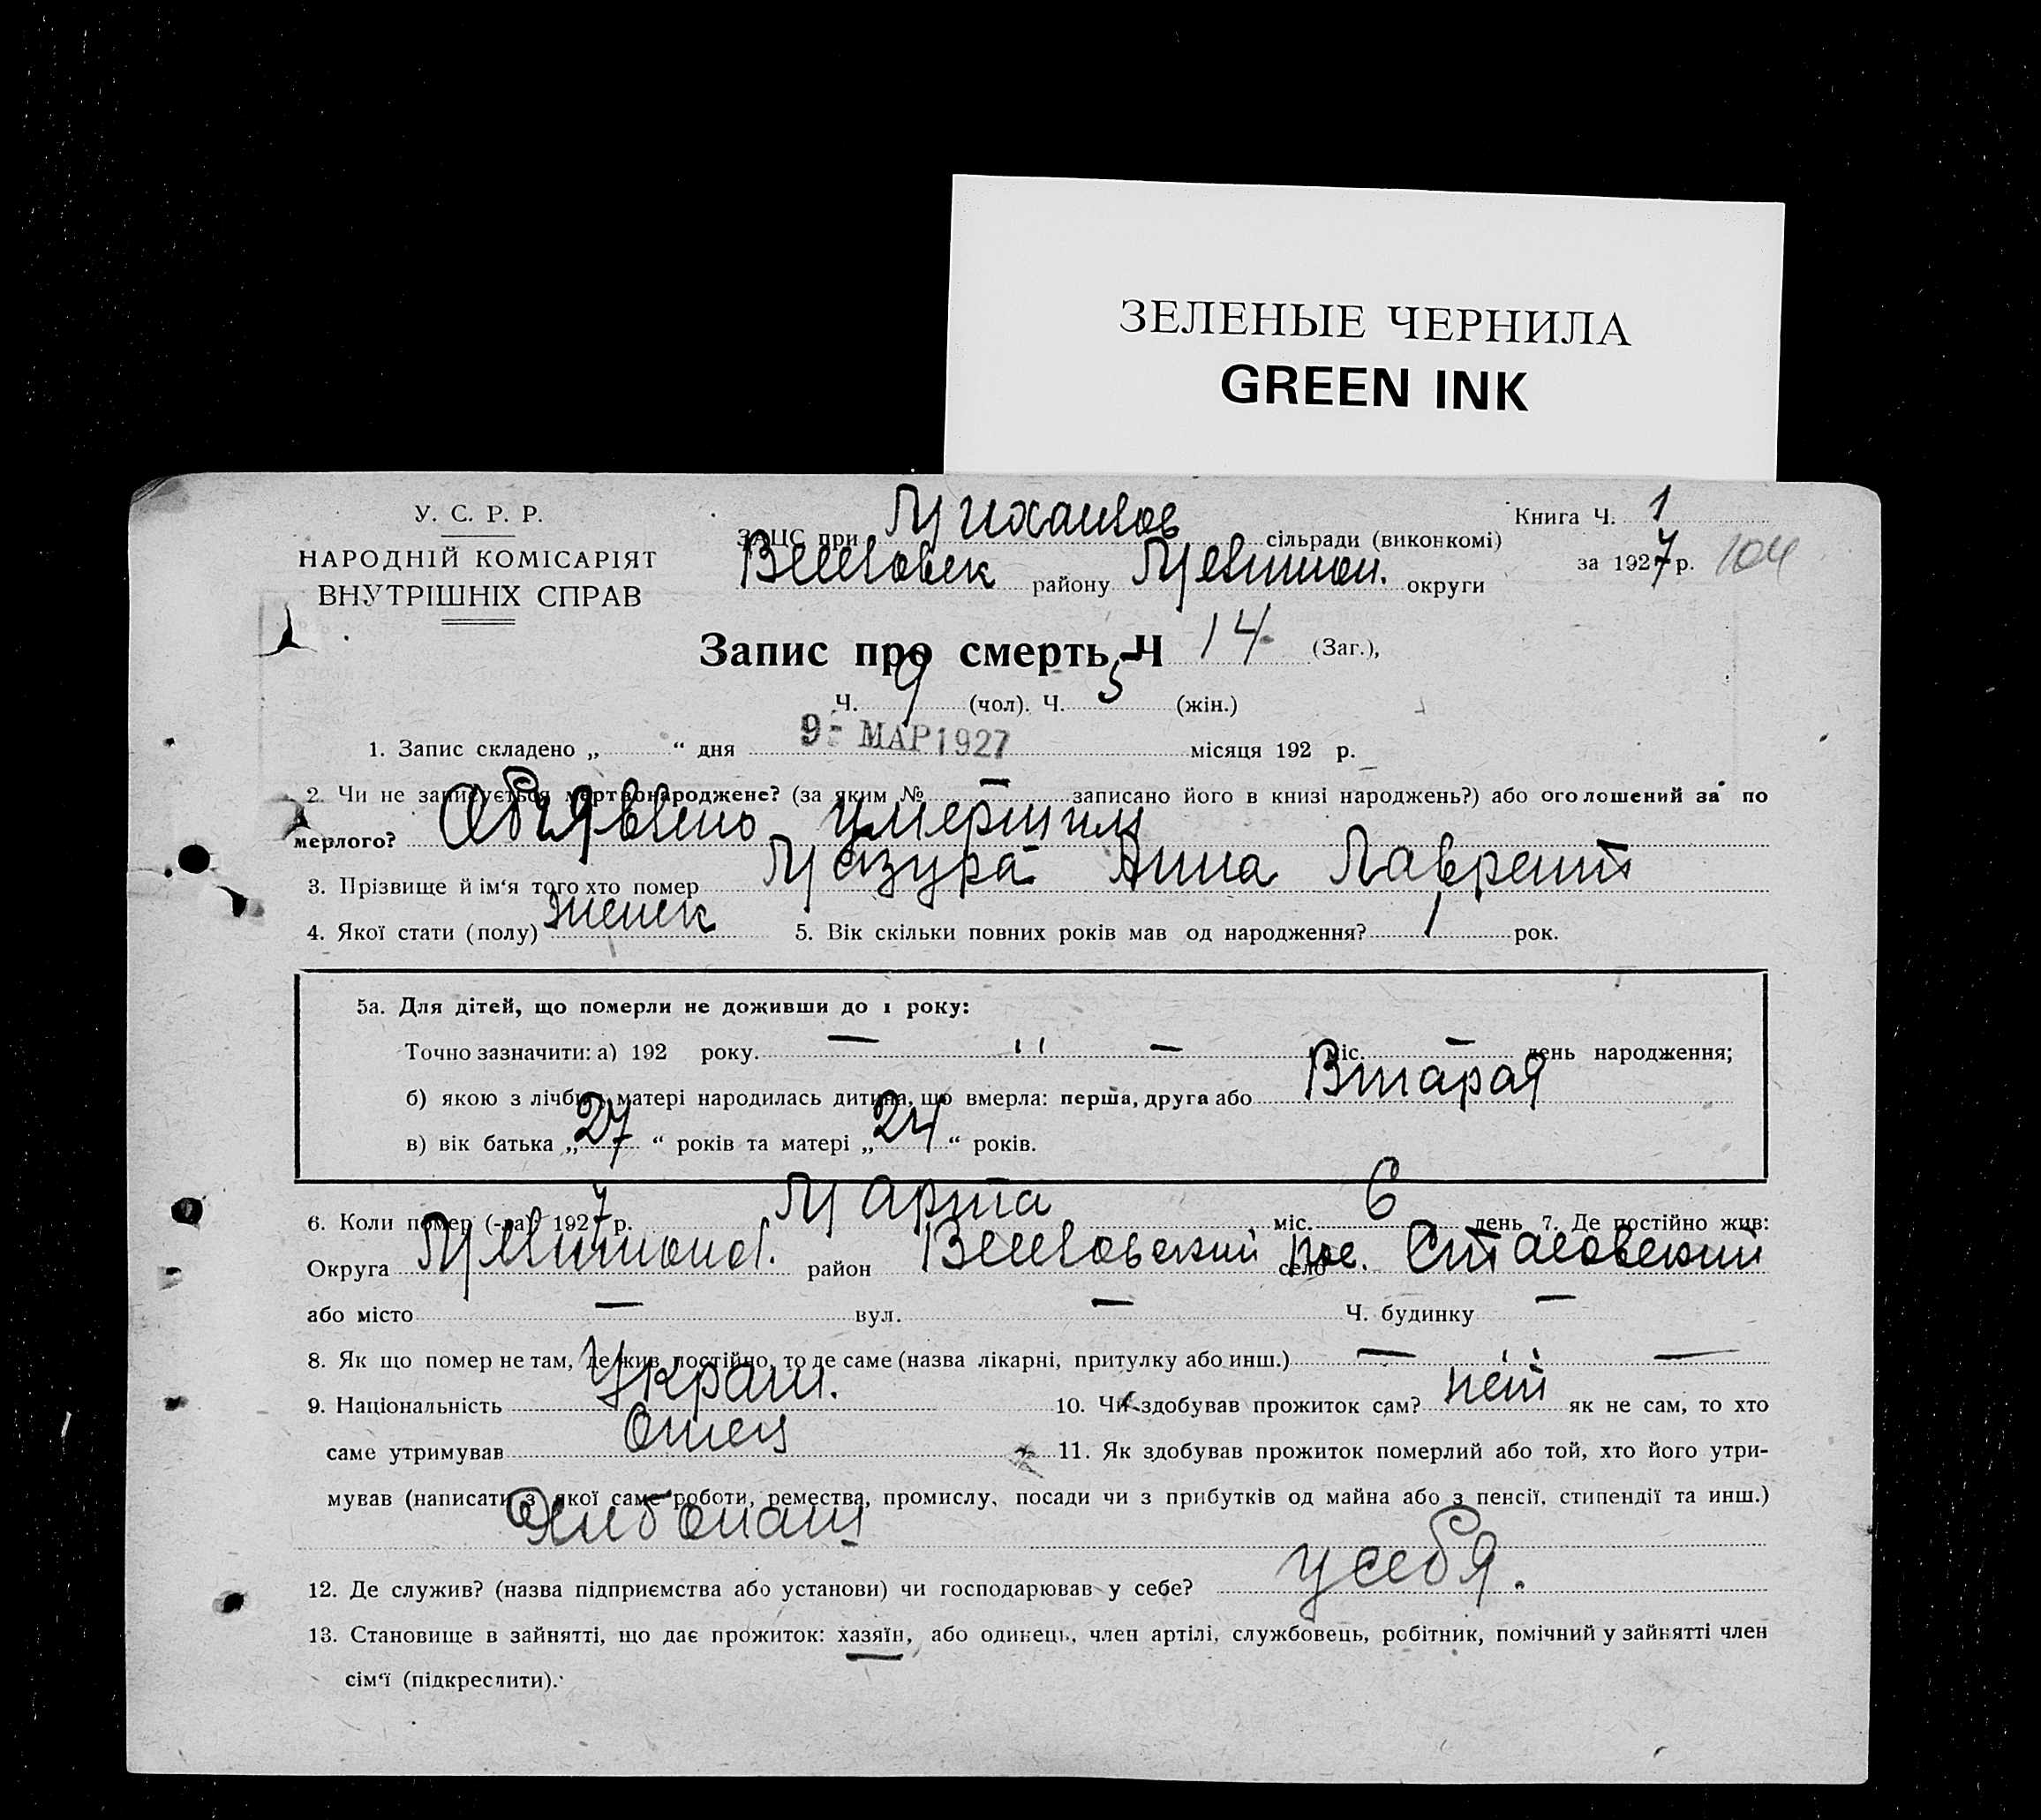 ЗЕЛЕНЫЕ ЧЕРНИЛА
GREEN INK
У. С. Р. Р.
НАРОДНІЙ КОМІСАРІЯТ
ВНУТРІШНІХ СПРАВ
ЗАЦС при Михаилов сільради (виконкомі)
району округи
Книга Ч. 1
за 1927 р. 104
Запис про смерть Ч 14 (Заг.),
Ч. 9 (чол). Ч. 5 (жін.)
1. Запис складено „ “ дня 9- МАР 1927 місяця 192 р.
2. Чи не записується мертвонароджене? (за яким № — записано його в книзі народжень?) або оголошений за по
мерлого? умершим
3. Прізвище й ім‘я того хто помер Мазура Анна Лаврент
4. Якої стати (полу) женск 5. Вік скільки повних років мав од народження? 1 рок.
5а. Для дітей, що померли не доживши до 1 року:
Точно зазначити: а) 192 року. — " — міс. — день народження;
б) якою з лічби у матері народилась дитина, що вмерла: перша, друга або Втарая
в) вік батька „ 27 “ років та матері „ 24 “ років.
6. Коли помер (-ла) 1927 р. Марта міс. 6 день 7. Де постійно жив:
Округа район село
або місто — вул. — Ч. будинку —
8. Як що помер не там, де жив постійно, то де саме (назва лікарні, притулку або инш.) — " —
9. Національність Украин. 10. Чи здобував прожиток сам? нет як не сам, то хто
саме утримував Отец 11. Як здобував прожиток померлий або той, хто його утри-
мував (написати з якої саме роботи, ремества, промислу, посади чи з прибутків од майна або з пенсії, стипендії та инш.)
12. Де служив? (назва підприємства або установи) чи господарював у себе? у себя.
13. Становище в зайнятті, що дає прожиток: хазяїн, або одинець, член артілі, службовець, робітник, помічний у зайнятті член
сім‘ї (підкреслити).